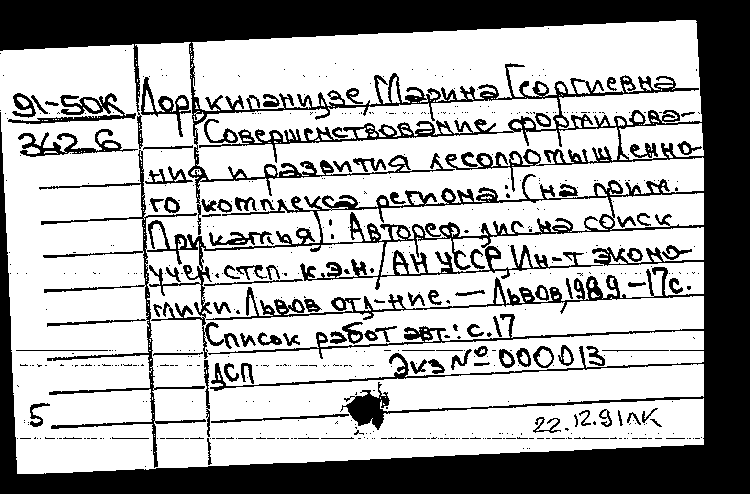 91-50К Лорджипанидзе, Марина Георгиевна
342 6 Совершенствование формирова-
ния и развития лесопромышленно-
го комплекса региона: (на прим.
Прикатья): Автореф. дис. на соиск
учен. степ. к.э.н. / АН УССР, Ин-т эконо-
мики. Львов отд-ние. — Львов, 1989. — 17 с.
Список работ авт.: с. 17
ДСП Экз № 000013
5
22.12.91 ЛК